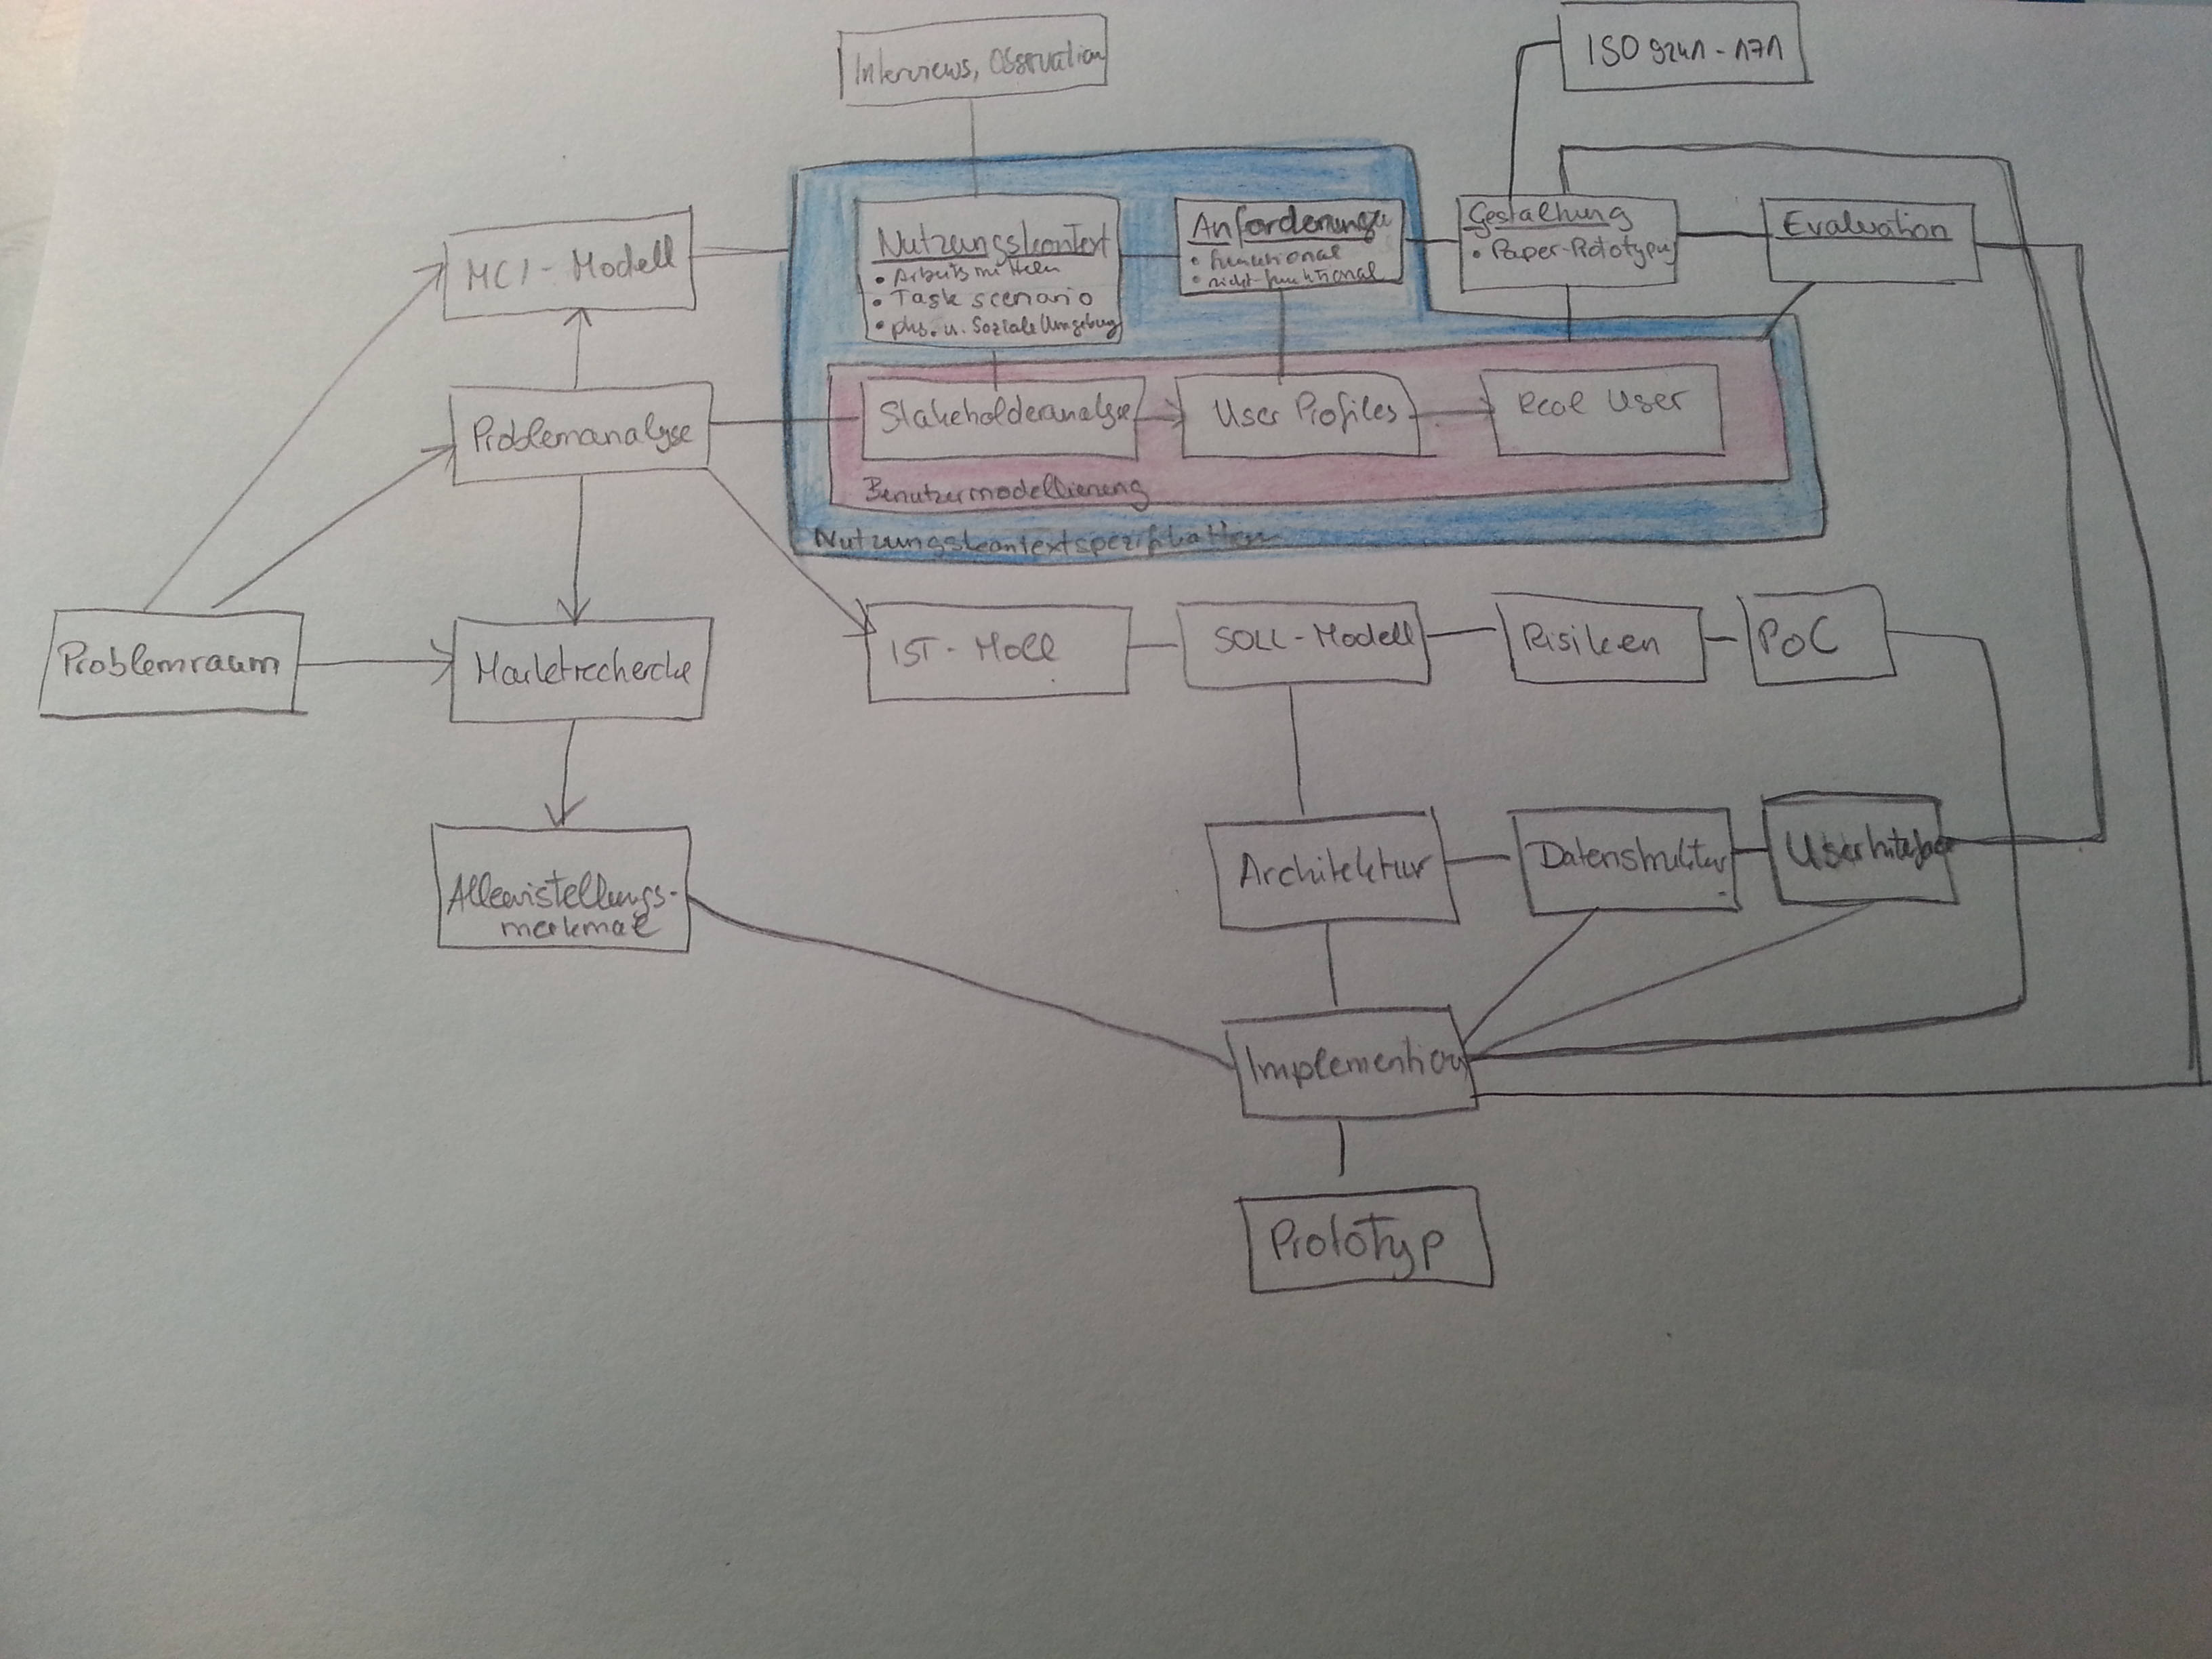 Interviews, Observation
ISO 9241-171
MCI-Modell
Nutzungskontext
• Arbeitsmitteln
• Task scenario
• phs. u. Soziale Umgebung
Anforderunge
• funktional
• nicht-funktional
Gestaltung
• Paper-Prototypg
Evaluation
Problemanalyse
Stakeholderanalyse
User Profiles
Real User
Benutzermodellierung
Nutzungskontextspezifikation
Problemraum
Marktrecherche
IST-Moll
SOLL-Modell
Risiken
PoC
Alleinstellungs-
merkmal
Architektur
Datenstruktur
Userinterface
Implemention
Prototyp